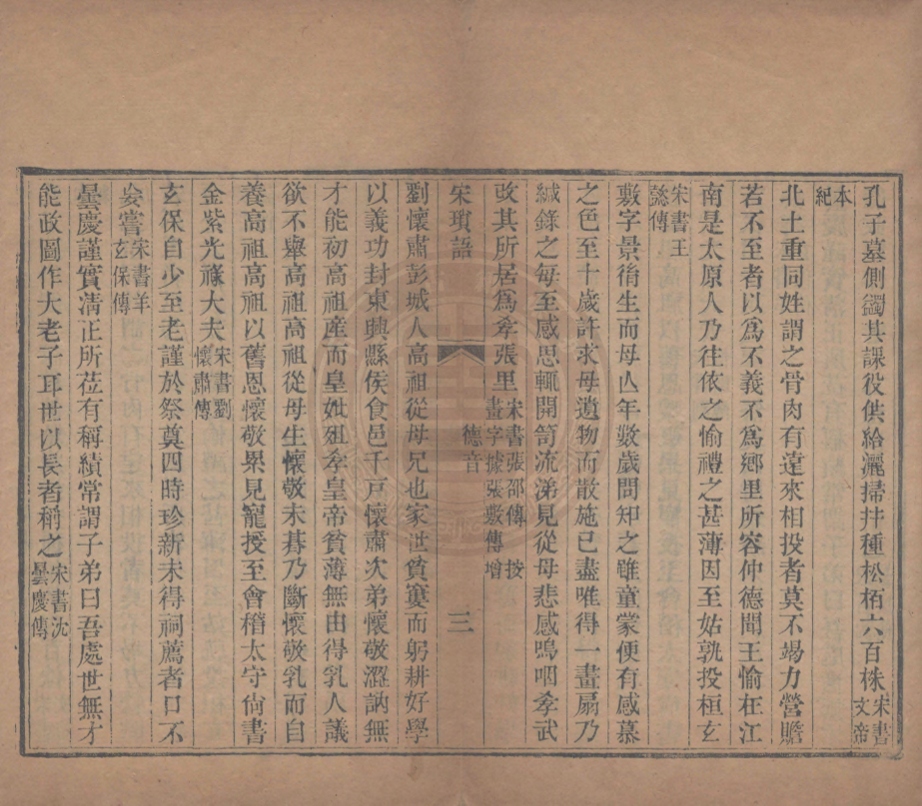 孔子墓側蠲其課役供給灑掃幷種松栢六百株宋書文帝
本紀
北土重同姓謂之骨肉有遠來相投者莫不竭力營贍
若不至者以爲不義不爲鄉里所容仲德聞王愉在江
南是太原人乃往依之愉禮之甚薄因至姑孰投桓玄
宋書王懿傳
敷字景胤生而母亾年數歲問知之雖童蒙便有感慕
之色至十歲許求母遺物而散施已盡唯得一畫扇乃
緘錄之每至感思輒開笥流涕見從母悲感嗚咽孝武
改其所居爲孝張里宋書張邵傳　按畫字據張敷傳增
宋瑣語　德音　三
劉懷肅彭城人高祖從母兄也家世貧窶而躬耕好學
以義功封東興縣侯食邑千戸懷肅次弟懷敬澀訥無
才能初高祖產而皇妣殂孝皇帝貧薄無由得乳人議
欲不舉高祖高祖從母生懷敬未朞乃斷懷敬乳而自
養高祖高祖以舊恩懷敬累見寵授至會稽太守尙書
金紫光祿大夫宋書劉懷肅傳
玄保自少至老謹於祭奠四時珍新未得祠薦者口不
妄嘗宋書羊玄保傳
曇慶謹實淸正所莅有稱績常謂子弟曰吾處世無才
能政圖作大老子耳世以長者稱之宋書沈曇慶傳